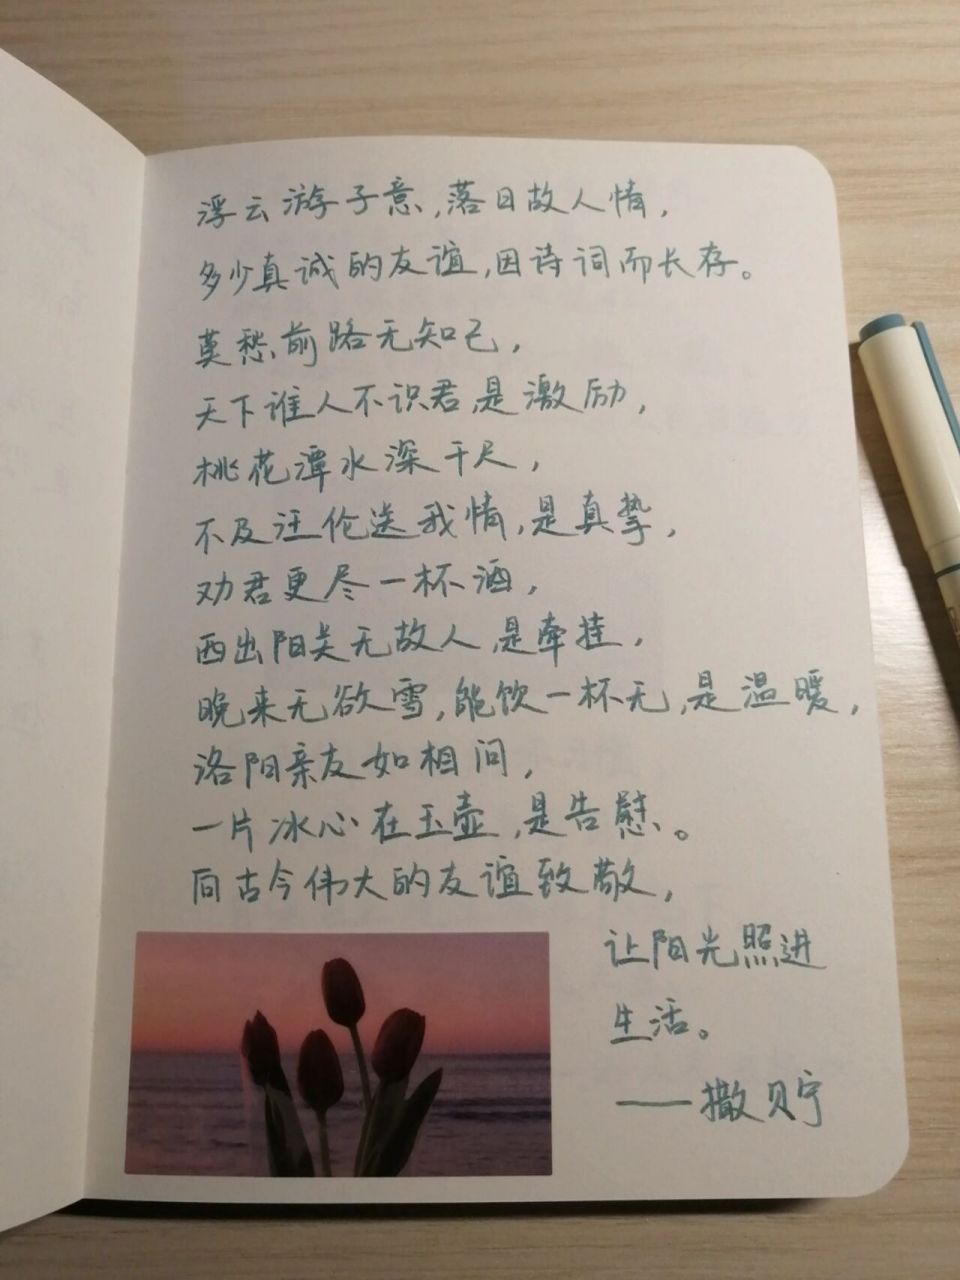 浮云游子意,落日故人情,
多少真诚的友谊,因诗词而长存。
莫愁前路无知己,
天下谁人不识君,是激励,
桃花潭水深千尺,
不及汪伦送我情,是真挚,
劝君更尽一杯酒,
西出阳关无故人,是牵挂,
晚来无欲雪,能饮一杯无,是温暖,
洛阳亲友如相问,
一片冰心在玉壶,是告慰。
向古今伟大的友谊致敬,
让阳光照进
生活。
——撒贝宁